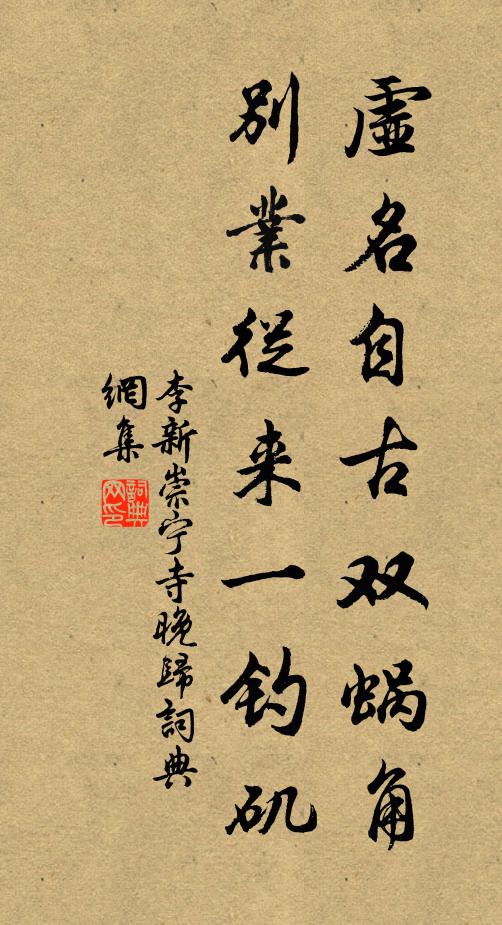 虛名自古双蜗角
别業從来一钓矶
李新崇宁寺晚歸詞典
網集
詞典
网印